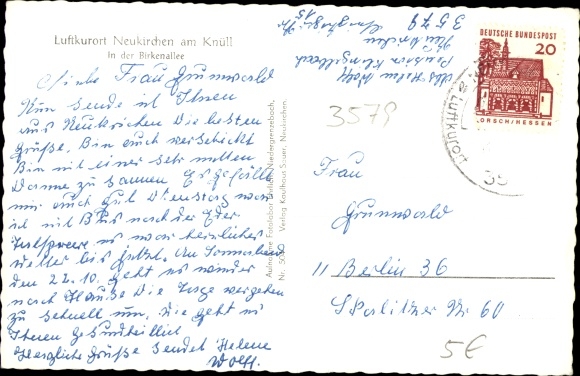 Luftkurort Neukirchen am Knüll
In der Birkenallee
Liebe Frau Grunwald
Nun sende ich Ihnen
aus Neukirchen die besten
Grüße. Bin auch verschickt
Bin mit einer sehr netten
Dame zu sammen Es gefällt
mir auch gut Dienstag war
ich mit Bus nach der Eder
Talsperre es war herrliches
Wetter bis jetzt. Am Sonnabend
den 22.10. geht es wieder
nach Hause Die Tage vergehen
zu schnell um. Wie geht es
Ihnen Gesundheitlich
Herzliche Grüße sendet Helene
Wolff.
Abs. Helene Wolff
Pension Klingelbach
Neukirchen
3579
15
Aufnahme Fotolabor Niedergrenzebach.
Nr. 5080 Verlag Kaufhaus Sauer, Neukirchen.
DEUTSCHE BUNDESPOST
20
LORSCH/HESSEN
LUFTKURORT
35
3579
Frau
Grunwald
11 Berlin 36
Skalitzer Str 60
5€